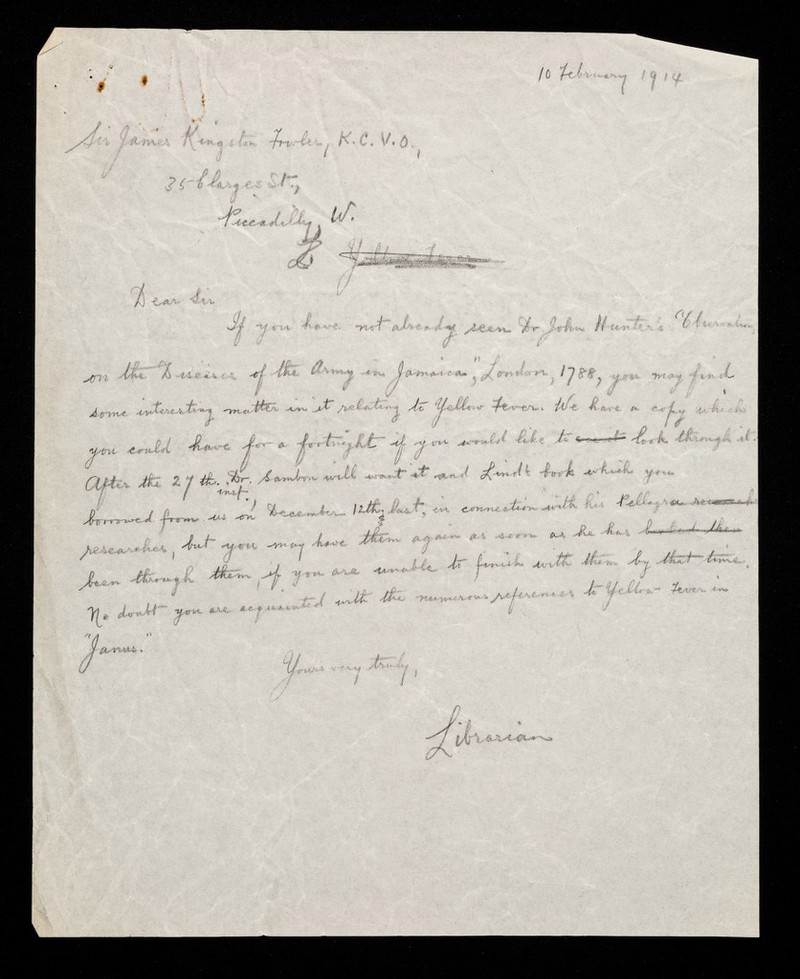 10 February 1914
Sir James Kingston Fowler, K.C.V.O.,
35 Clarges St.,
Piccadilly, W.
Yellow Fever
Dear Sir
If you have not already seen Dr John Hunter's "Observations
on the Diseases of the Army in Jamaica", London, 1788, you may find
some interesting matter in it relating to Yellow Fever. We have a copy which
you could have for a fortnight if you would like to look through it.
After the 27th inst., Dr. Sambon will want it and Lind's book which you
borrowed from us on December 12th last, in connection with his Pellagra
researches, but you may have them again as soon as he has
been through them, if you are unable to finish with them by that time.
No doubt you are acquainted with the numerous references to Yellow Fever in
"Janus."
Yours very truly,
Librarian